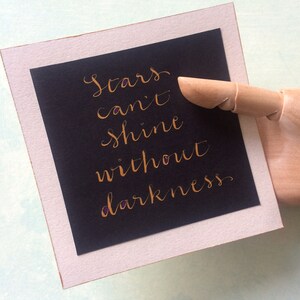 Stars
can't
shine
without
darkness.